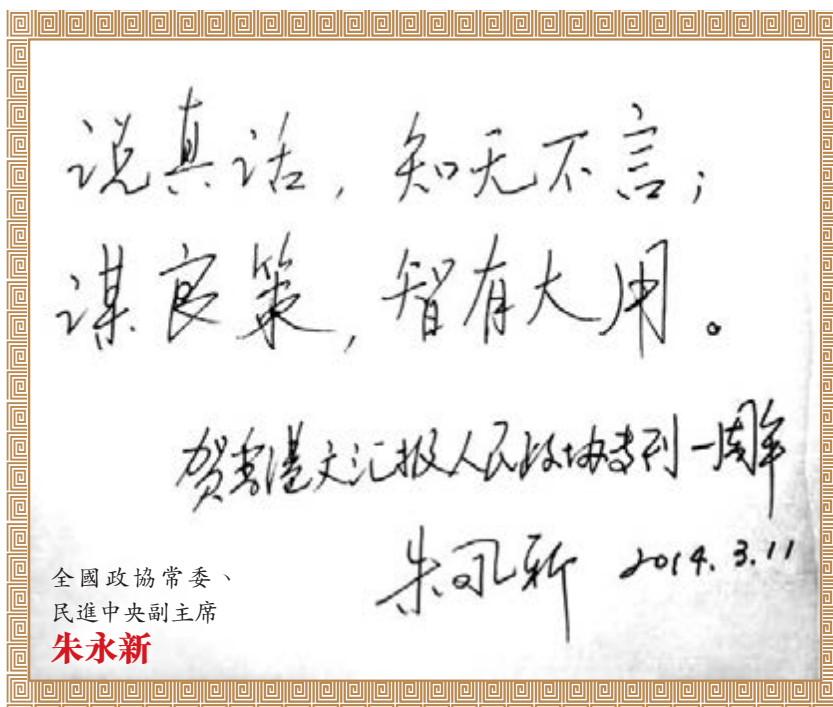 说真话，知无不言；
谋良策，智有大用。
贺香港文汇报人民政协专刊一周年
朱永新 2014.3.11
全國政協常委、
民進中央副主席
朱永新